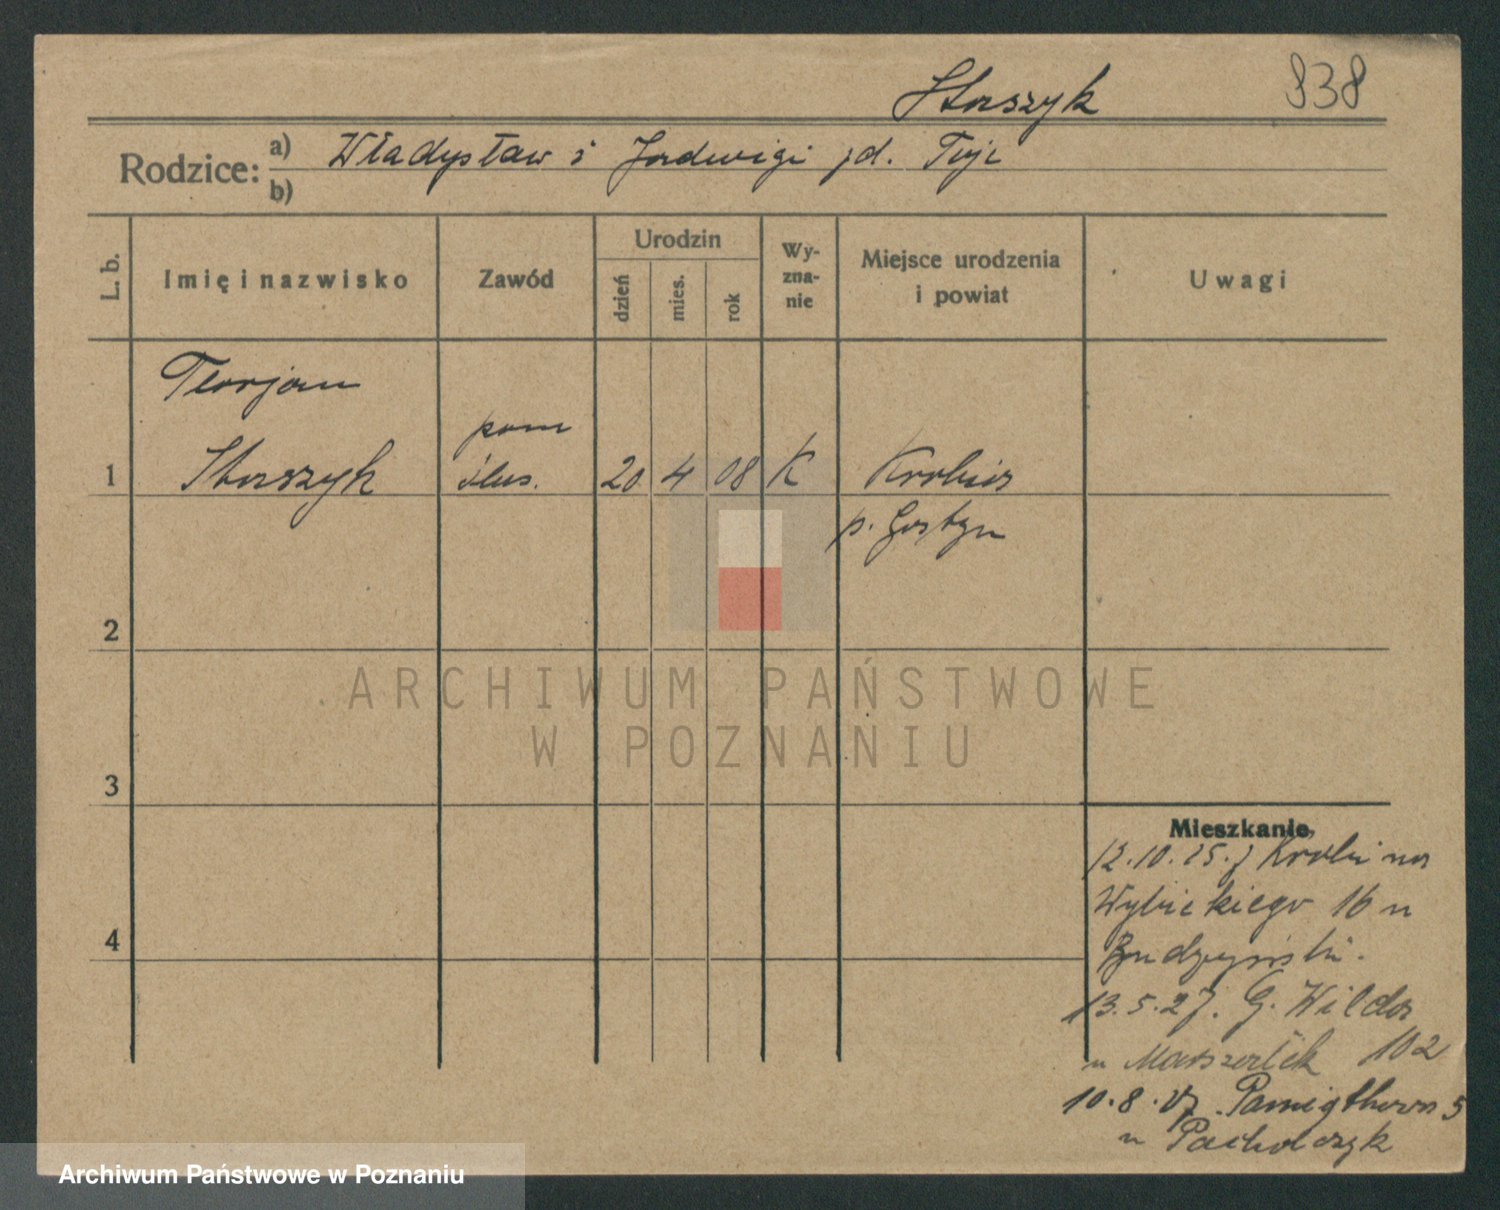 Staszyk
838
Rodzice:
a) Władysław i Jadwigi zd.
b)
L. b.
Imię i nazwisko
Zawód
Urodzin
dzień
mies.
rok
Wy-
zna-
nie
Miejsce urodzenia
i powiat
Uwagi
Florjan
pom
1 Staszyk ślus. 20 4 08 K Krobia
p. Gostyn
2
ARCHIWUM PAŃSTWOWE
W POZNANIU
3
Mieszkanie
12.10.25. z Krobi na
Wybickiego 16 u
4
13.5.27. G. Wilda
u 102
10.8.27. 5
u Pacholczyk
Archiwum Państwowe w Poznaniu